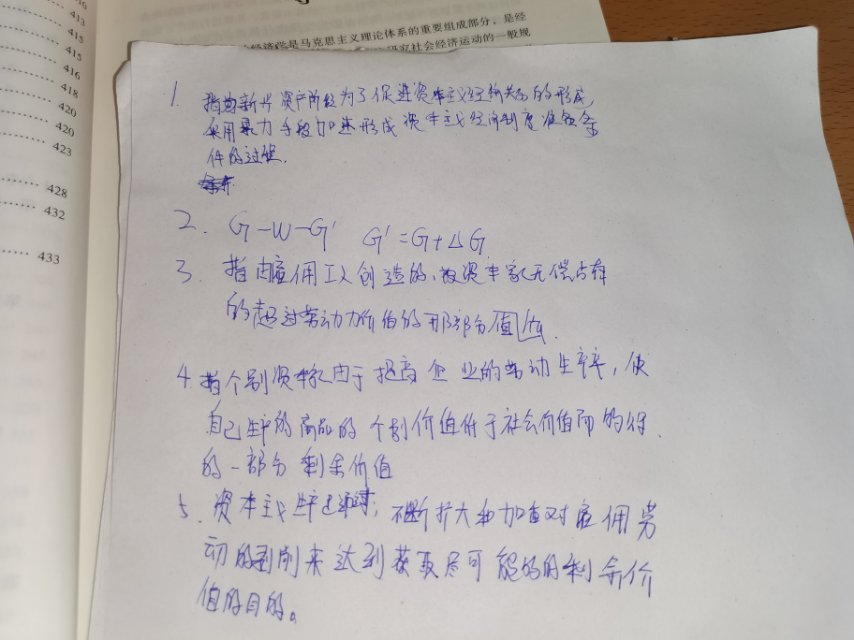 413
415
415
416
418
420
420
423
428
432
433
经济学是马克思主义理论体系的重要组成部分，是经
研究社会经济运动的一般规
1. 指的新兴资产阶级为了促进资本主义经济关系的形成,
采用暴力手段加速形成资本主义经济制度准备条
件的过程.
2. G-W-G' G'=G+△G
3. 指由雇佣工人创造的、被资本家无偿占有
的超过劳动力价值的那部分价值
4. 指个别资本家由于提高企业的劳动生产率，使
自己生产的商品的个别价值低于社会价值而的得
的一部分剩余价值
5. 资本主义生产通过, 不断扩大和加重对雇佣劳
动的剥削来达到获取尽可能的的剩余价
值的目的。